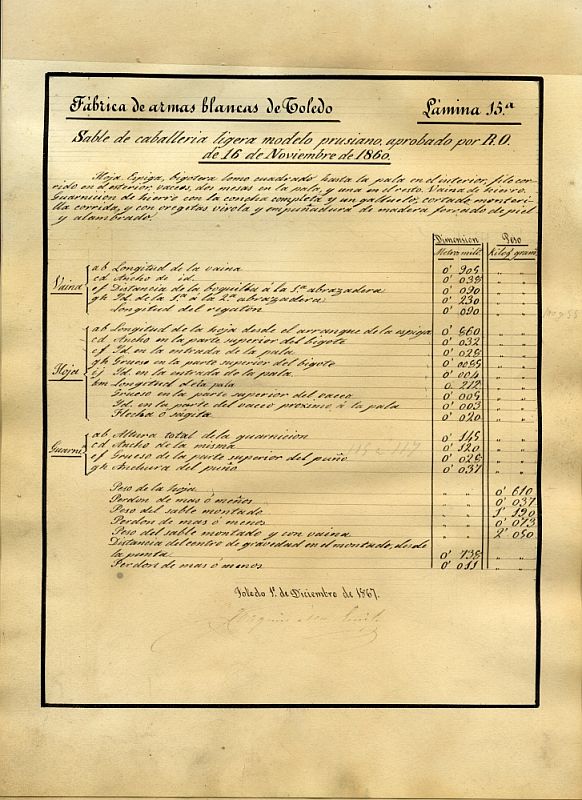 Fábrica de armas blancas de Toledo
Lámina 15.ª
Sable de caballeria ligera modelo prusiano, aprobado por R.O.
de 16 de Noviembre de 1860.
Hoja. Espiga, bigotera lomo cuadrado hasta la pala en el interior, filo cor-
rido en el esterior, vaceos, dos mesas en la pala, y una en el resto. Vaina de hierro.
Guarnicion de hierro con la concha completa y un galluelo, cortado, monteri-
lla corrida, y con oregetas virola y empuñadura de madera forrado de piel
y alambrado.
Dimension Peso
Metro mili. Kilog. gram.
Vaina
ab Longitud de la vaina 0' 905 " "
cd Ancho de id. 0' 038 " "
ef Distancia de la boquilla á la 1.ª abrazadera 0' 090 " "
gh Id. de la 1.ª á la 2.ª abrazadera 0' 230 " "
Longitud del regaton 0' 090 " "
Hoja
ab Longitud de la hoja desde el arranque de la espiga 0' 860 " "
cd Ancho en la parte superior del bigote 0' 032 " "
ef Id. en la entrada de la pala 0' 028 " "
gh Grueso en la parte superior del bigote 0' 0085 " "
ij Id. en la entrada de la pala 0' 004 " "
km Longitud de la pala 0. 212 " "
Grueso en la parte superior del vaceo 0' 005 " "
Id. en la parte del vaceo proximo á la pala 0' 003 " "
Flecha ó sagita 0' 020 " "
Guarni.n
ab Altura total de la guarnicion 0' 145 " "
cd Ancho de la misma 0' 120 " "
ef Grueso de la parte superior del puño 0' 028 " "
gh Anchura del puño 0' 037 " "
Peso de la hoja " " 0' 610
Perdon de mas ó menos " " 0' 037
Peso del sable montado " " 1' 190
Perdon de mas ó menos " " 0' 073
Peso del sable montado y con vaina " " 2' 050
Distancia del centro de gravedad en el montado, desde
la punta 0' 738 " "
Perdon de mas ó menos 0' 011 " "
Toledo 1.º de Diciembre de 1867.